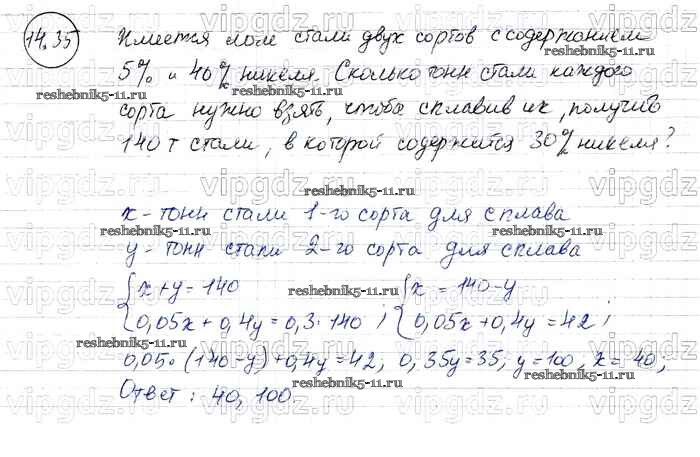 14.35 Имеется лом стали двух сортов с содержанием
5% и 40% никеля. Сколько тонн стали каждого
сорта нужно взять, чтобы сплавив их, получить
140 т стали, в которой содержится 30% никеля?
x - тонн стали 1-го сорта для сплава
y - тонн стали 2-го сорта для сплава
{x+y=140 {x = 140-y
{0,05x + 0,4y = 0,3·140; {0,05x+0,4y=42;
0,05·(140-y)+0,4y=42, 0,35y=35; y=100, x=40,
Ответ: 40, 100.
vipgdz.ru
reshebnik5-11.ru